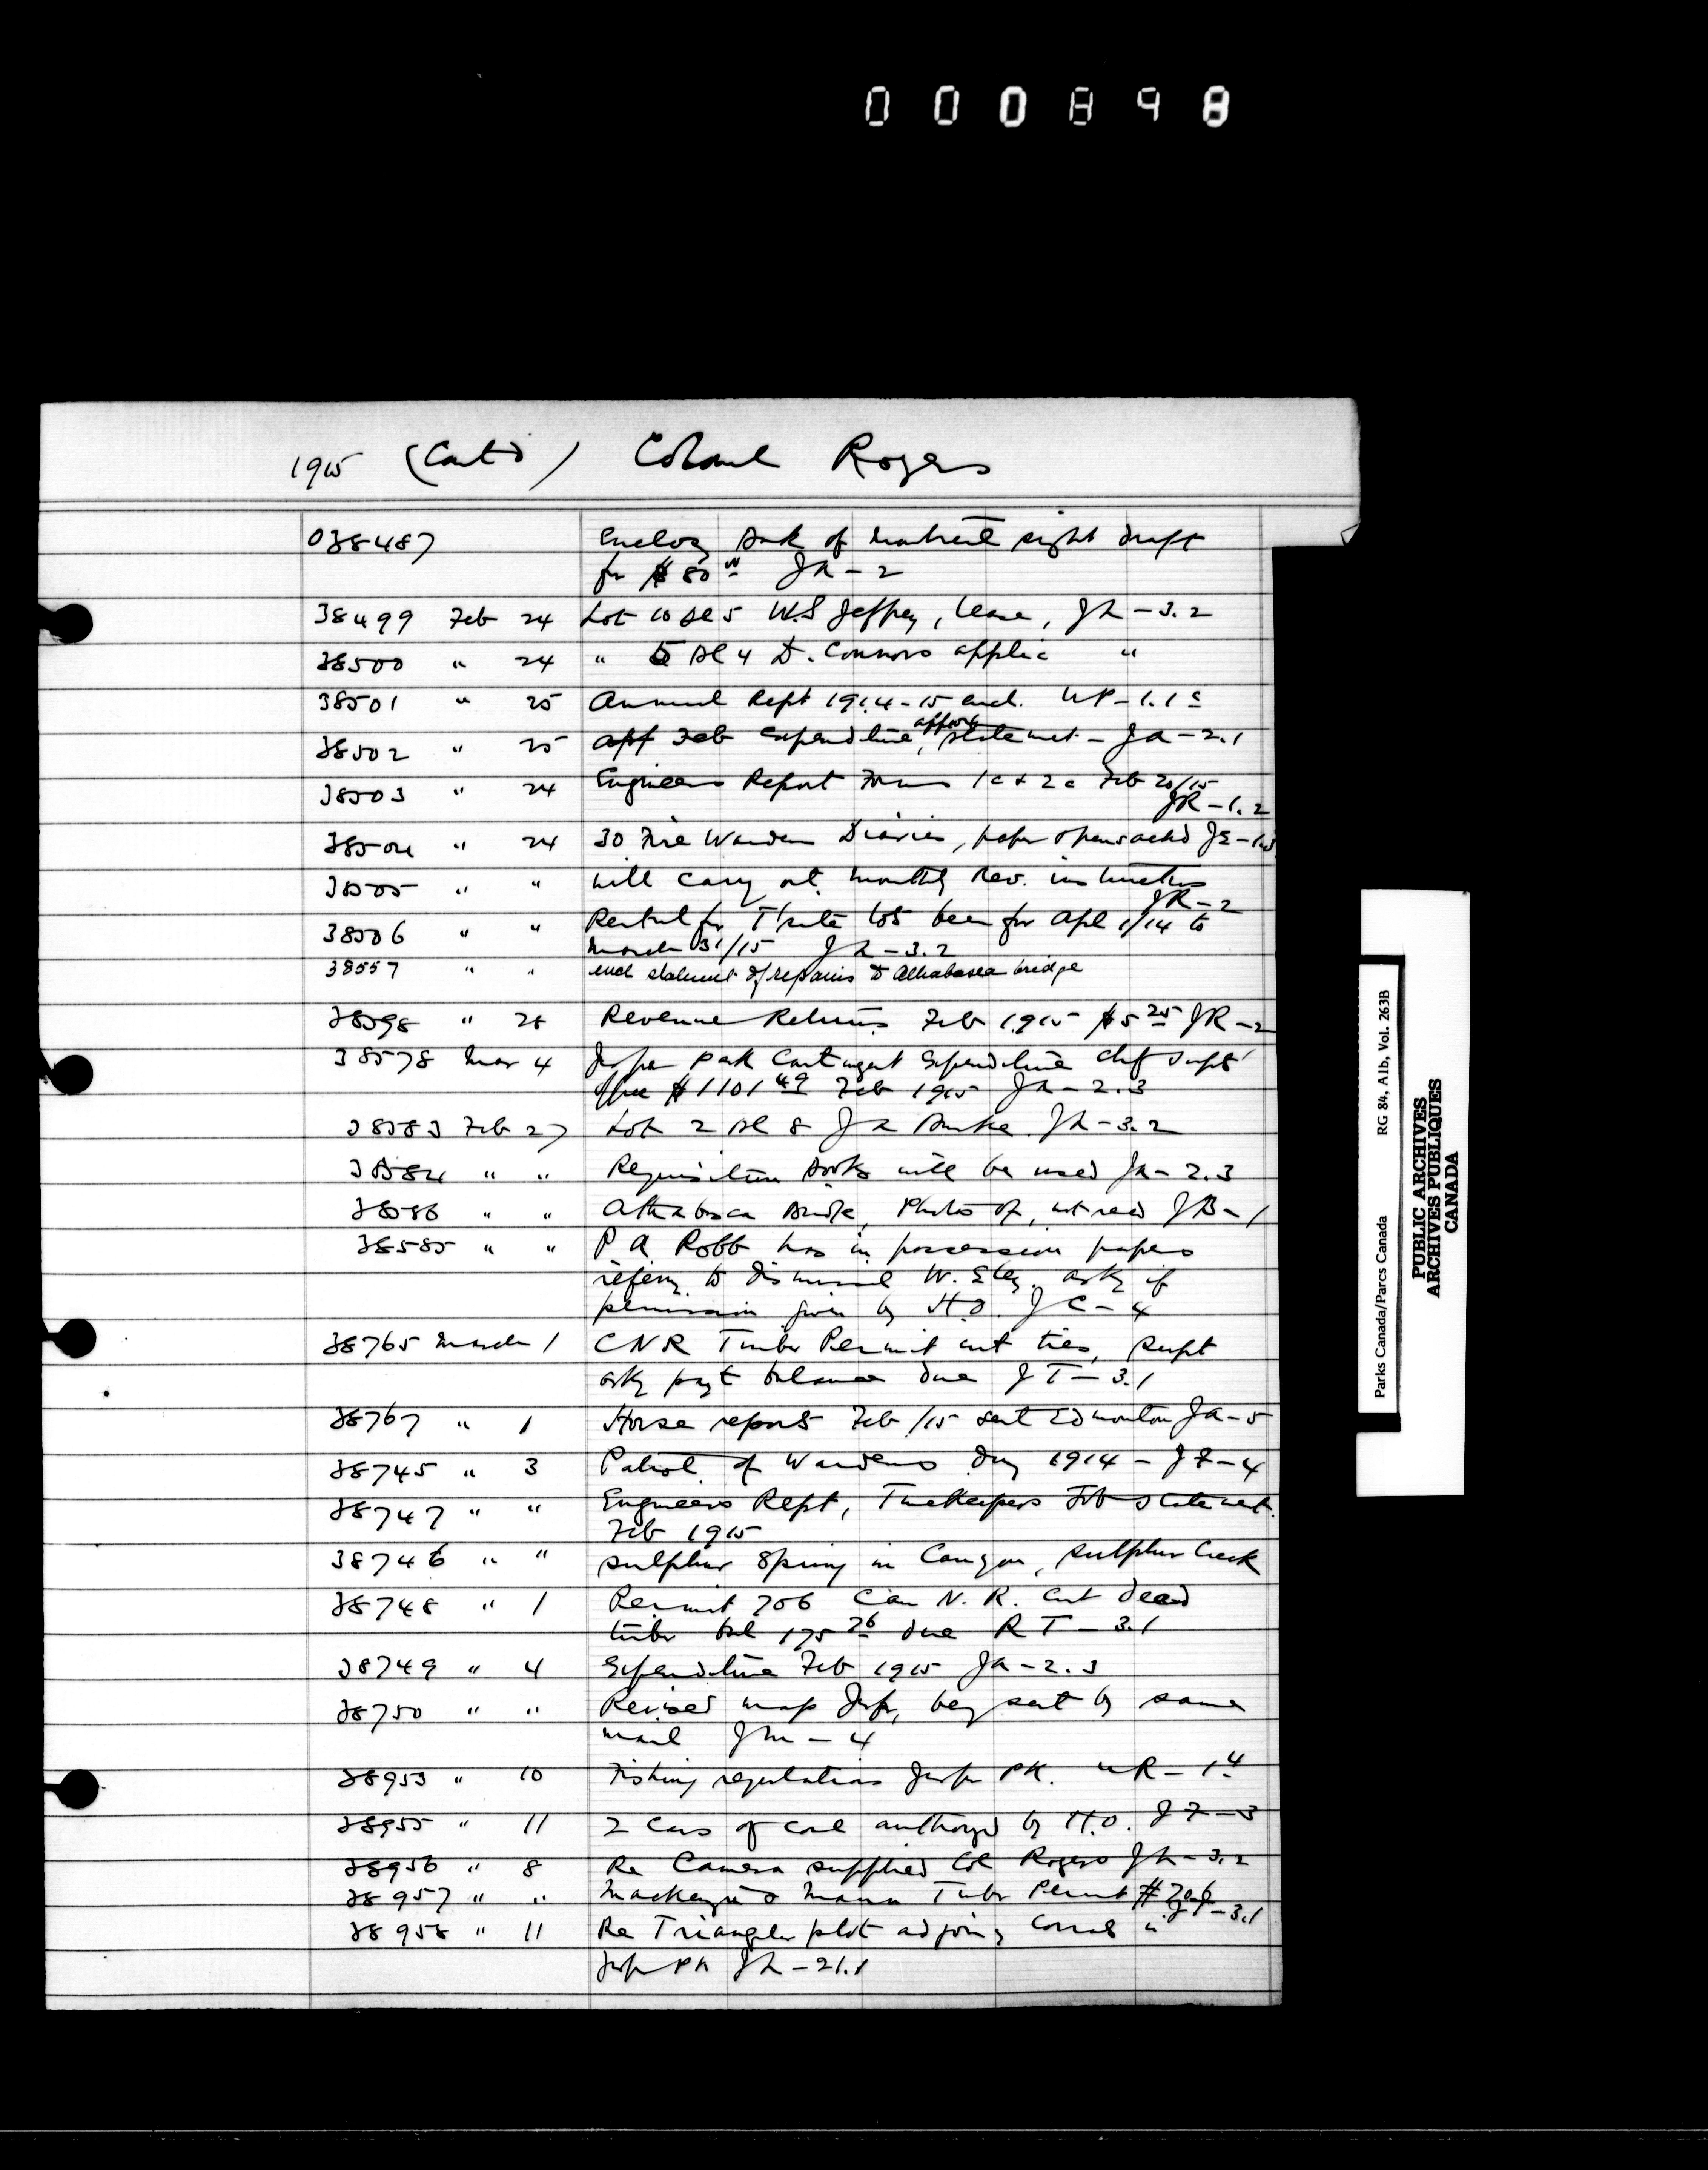 000898
1915 (Cont'd) Colonel Rogers
038487 Enclosg Bank of Montreal sight draft
for $80 JA - 2
38499 Feb 24 Lot 10 Bl 5 W.S Jeffrey, lease, JL - 3.2
38500 " 24 " 5 Bl 4 D. Connors applic "
38501 " 25 Annual Rept 1914-15 encl. UP - 1.1
38502 " 25 Feb Expenditure, statement - JA - 2.1
38503 " 24 Engineers Report Forms 1c & 2c Feb 20/15
JR - 1.2
38504 " 24 30 Fire Warden Diaries, paper
38505 " " will carry out monthly Rev. instructions
JR - 2
38506 " " Rental for lots been for Apl 1/14 to
March 31/15 JL - 3.2
38557 " " encl statement of repairs to Athabasca bridge
38598 " 28 Revenue Returns Feb 1915 $5 25 JR - 2
38578 Mar 4 Jasper Park Contingent Expenditure Chf Supts'
Office $1101 49 Feb 1915 JA - 2.3
38583 Feb 27 Lot 2 Bl 8 Burke JL - 3.2
38584 " " Requisition Books will be used JA - 2.3
38586 " " Athabasca Bridge, Photo of, not recd JB - 1
38585 " " P A Robb has in possession papers
referrg to dismissal W. Eley. askg if
permission given by H.O. JC - 4
38765 March 1 CNR Timber Permit cut ties, Supt
askg payt balance due JT - 3.1
38767 " 1 Horse reports Feb /15 sent Edmonton JA - 5
38745 " 3 Patrol of Wardens 1914 - JF - 4
38747 " " Engineers Rept, Timekeepers Feb statement.
Feb 1915
38746 " " Sulphur Spring in Canyon, Sulphur Creek
38748 " 1 Permit 706 Can N. R. Cut dead
timber bal 175 26 due RT - 3.1
38749 " 4 Expenditure Feb 1915 JA - 2.3
38750 " " Revised map Jasper, beg sent by same
mail JM - 4
38953 " 10 Fishing regulations Jasper PK. UR - 1 4
38955 " 11 2 Cars of coal authorzd by H.O. JF - 3
38956 " 8 Re Camera supplied Col Rogers JA - 3.2
38957 " " Mackenzie & Mann Timbr Permit #706
JT - 3.1
38958 " 11 Re Triangular plot adjoing Corral in
Jasper PK JL - 21.1
Parks Canada/Parcs Canada RG 84, Alb, Vol. 263B
PUBLIC ARCHIVES
ARCHIVES PUBLIQUES
CANADA